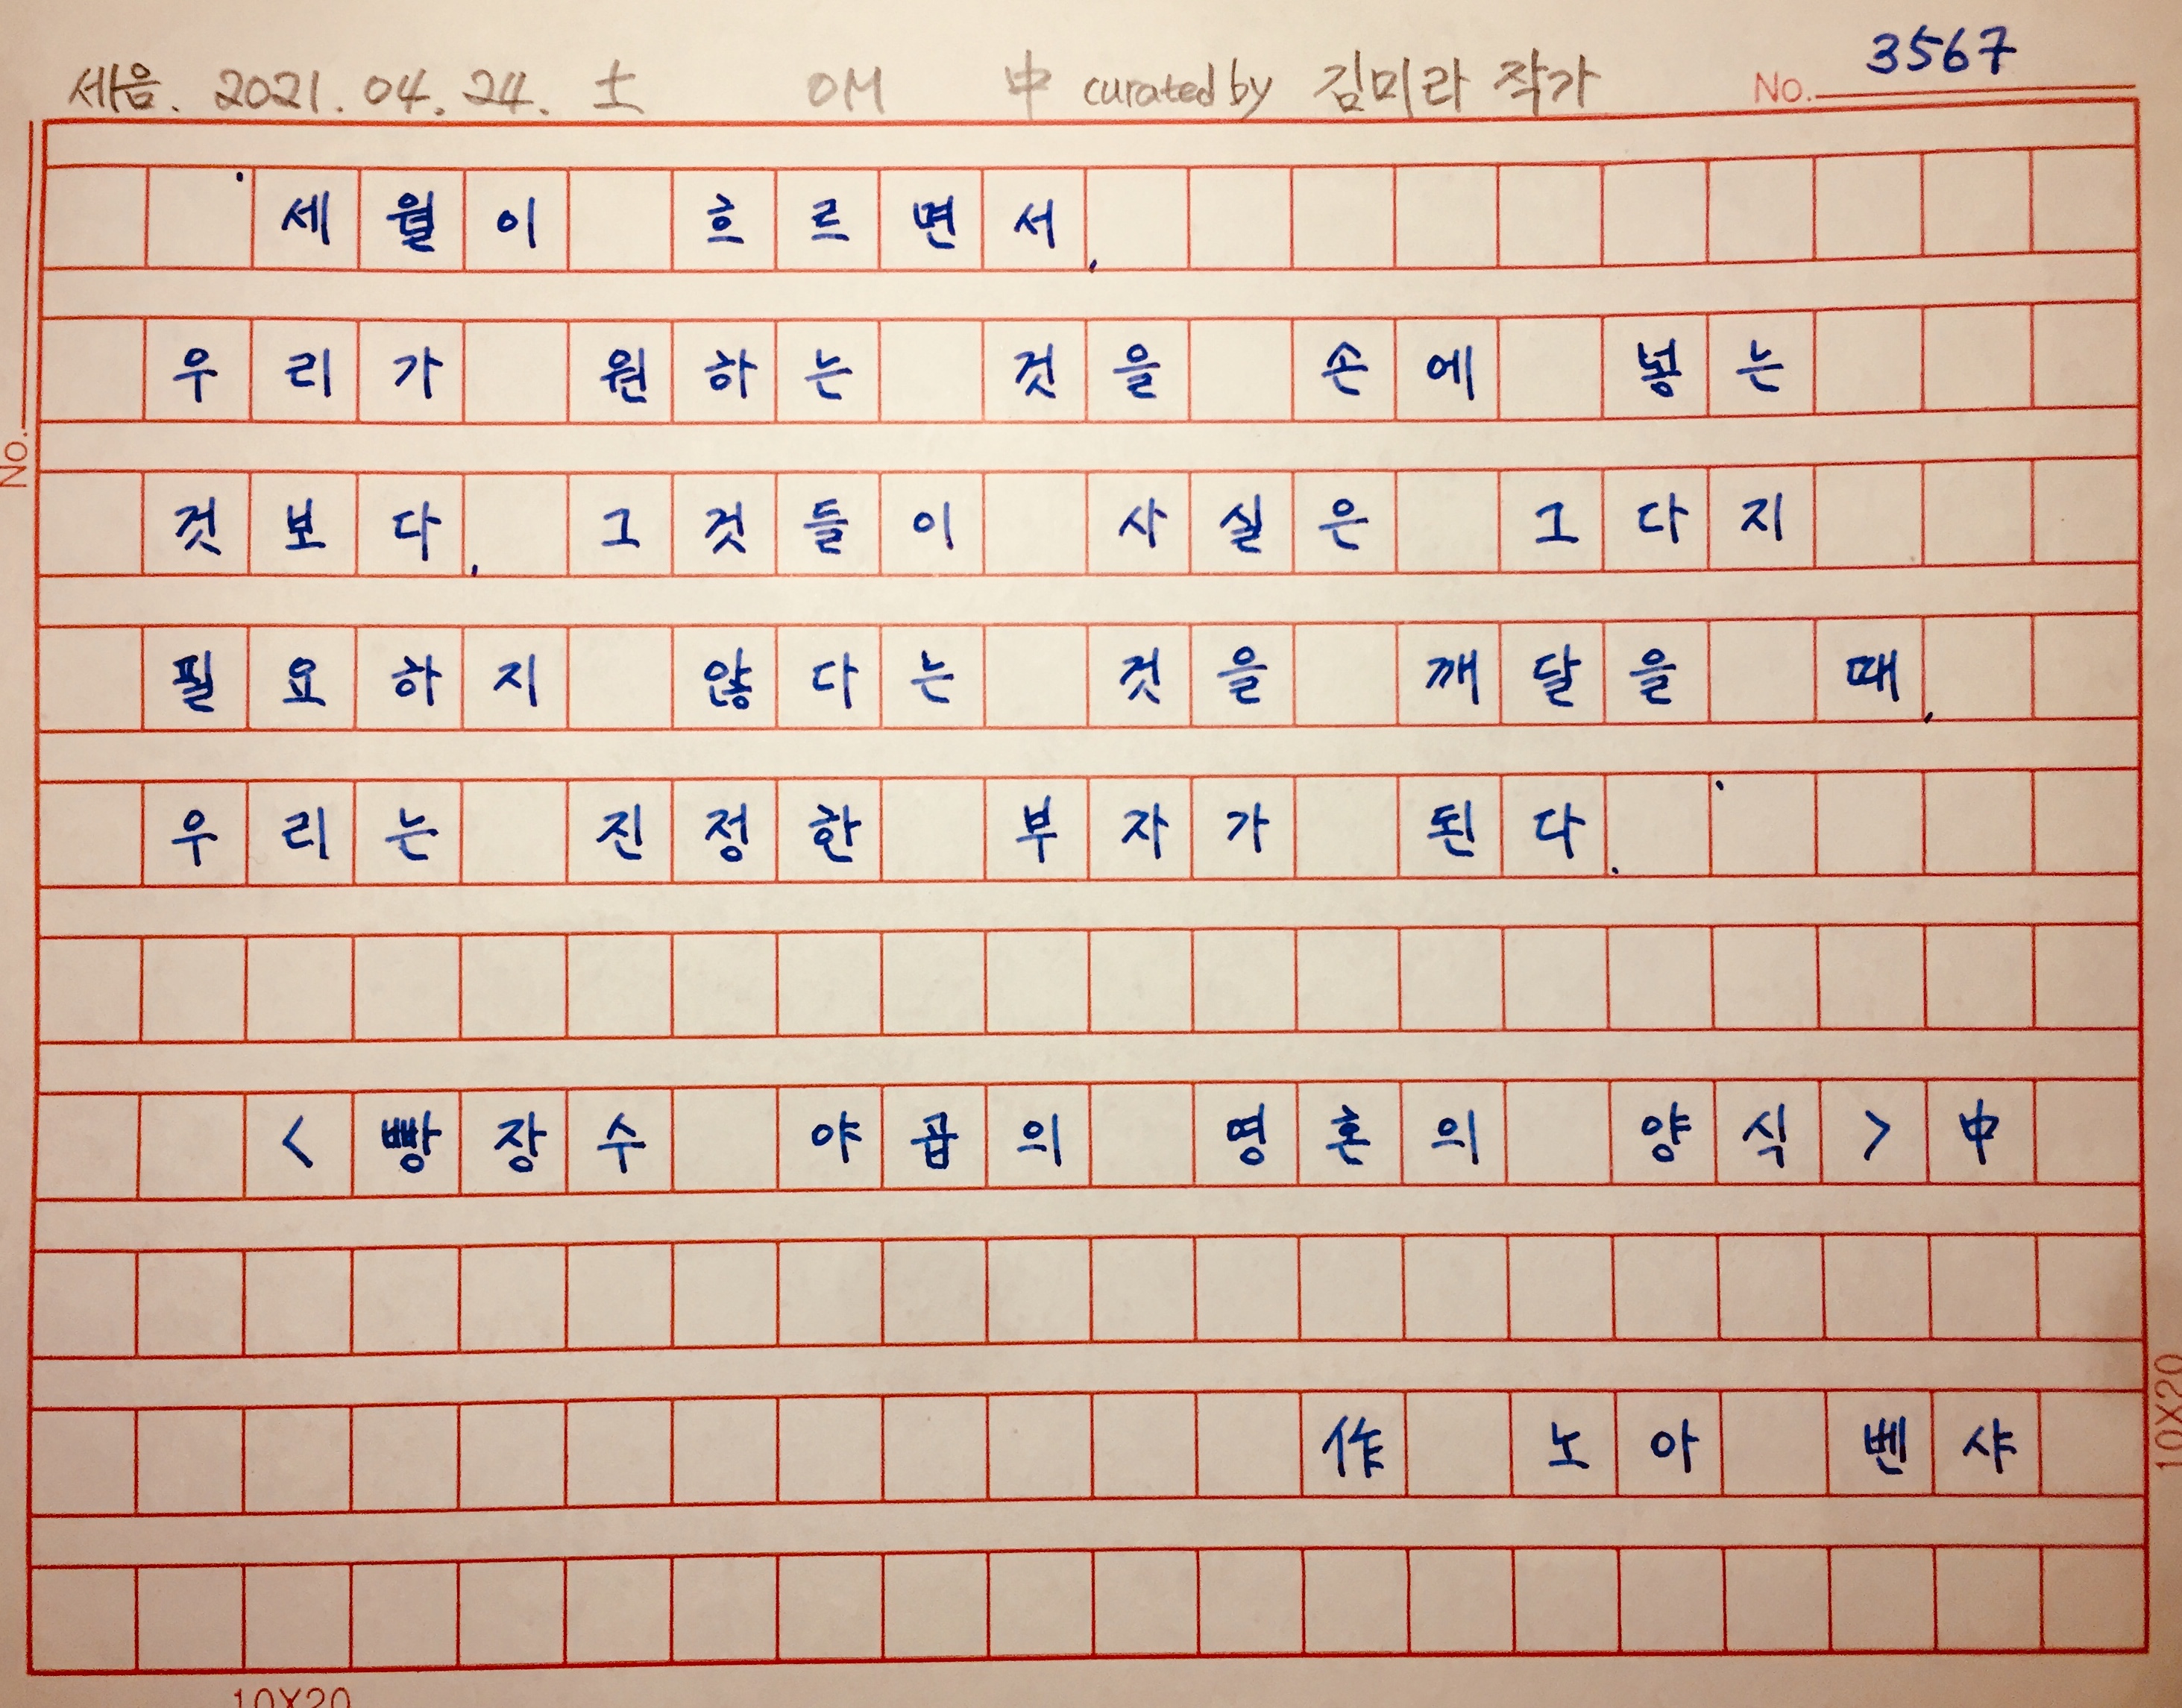 세음. 2021. 04. 24. 土 OM 中 curated by 김미라 작가 No. 3567
'세월이 흐르면서,
우리가 원하는 것을 손에 넣는
No.
것보다, 그것들이 사실은 그다지
필요하지 않다는 것을 깨달을 때,
우리는 진정한 부자가 된다.'
<빵장수 야곱의 영혼의 양식>中
作 노아 벤샤
10X20
10X20